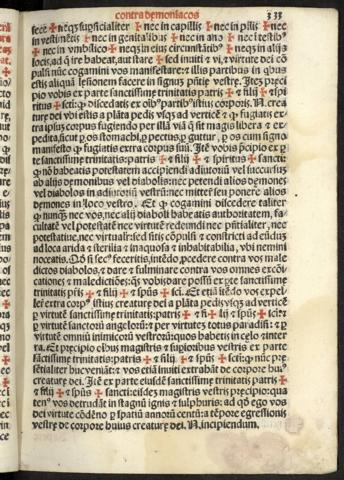 contra demoniacos
fece ✠ neqȝ suꝑficialiter ✠ nec in capillis ✠ nec in pilis ✠ nec
in vestimētis ✠ nec in genitalibus ✠ nec in ano ✠ nec in testibꝰ
✠ nec in vmbilico ✠ neqȝ in eius circunstātibꝰ ✠ neqȝ in alijs
locis, ad q̄ ire habeat, aut stare ✠ sed inuiti & vi, & virtute dei cō
pulsi nūc cogamini vos manifestare: & illis partibus in qbus
estis aliquā lesionem facere in signuȝ pñtie vestre. Itēȝ preci
pio vobis ex parte sanctissime trinitatis patris ✠ filij ✠ spi
ritus ✠ scti: qȝ discedatis ex oībꝰ partibꝰ istius corporis. N. crea
ture dei vbi estis a plāta pedis vsqȝ ad verticē & qȝ fugiatis ex
tra ipsius corpus fugiendo per illā viā q̄ sit magis libera & ex
pedita
manifesto qȝ fugiatis extra corpus suū. Itē vobis p̄cipio ex ꝑ
te sanctissime trinitatis: patris ✠ & filij ✠ & spiritus ✠ sancti:
qȝ nō habeatis potestatem accipiendi adiutoriū vel succursus
ab alijs demonibus vel diabolis: nec petendi alios demones
vel diabolos in adiutoriū vestrū: nec mittēt eu ponere alios
demones in loco vestro. Et qȝ cogamini discedere taliter
qȝ nunquȝ nec vos, nec alij diaboli habeatis authoritatem, fa-
cultatē vel potestatē nec virtutē redeundi nec pñtialiter, nec
potestatiue, nec virtualr: sed sitis cōpulsi & constricti ad eūdum
ad loca arida & sterilia & inaquosa & inhabitabilia, vbi nemini
noceatis. Qȝ si secꝰ feceritis, intēdo, ꝓcedere contra vos male
dictos diabolos, & dare & fulminare contra vos omnes excōi-
cationes & maledictiōes: qs vobis dare possū ex ꝑte sanctissime
trinitatis pris ✠ & filij ✠ & spūs ✠ sci. Et etiā itēdo vos expel
lere extra corpꝰ istius creature dei a plāta pedis vsqȝ ad verticē
ꝑ virtutē sanctissime trinitatis: patris ✠ & fi ✠ lij & spūs ✠ sci: &
ꝑ virtutē sanctorū angelorū: & per virtutes totius paradisi: & ꝑ
virtutē omniū inimicorū vestrorū: quos habetis in celo & inter
ra. Et precipio oībus magistris & sapioribus vestris ex parte
sāctissime trinitatis: patris ✠ & filij ✠ & spūs ✠ scti: qȝ nūc pre
sentialiter huc veniāt: & vos etiā inuiti extrahāt de corpore huiꝰ
creature dei. Itē ex parte eiusdē sanctissime trinitatis patris ✠
& filij ✠ & spūs ✠ sancti: eisdeȝ magistris vestris p̄cipio: qua
tenꝰ vos detrudāt in stagnū ignis & sulphuris: ad qd̄ ego vos
dei virtute cōdēno ꝑ spatiū annorū centū: a tēpore egressionis
vestre de corpore huius creature dei. N. incipiendum.